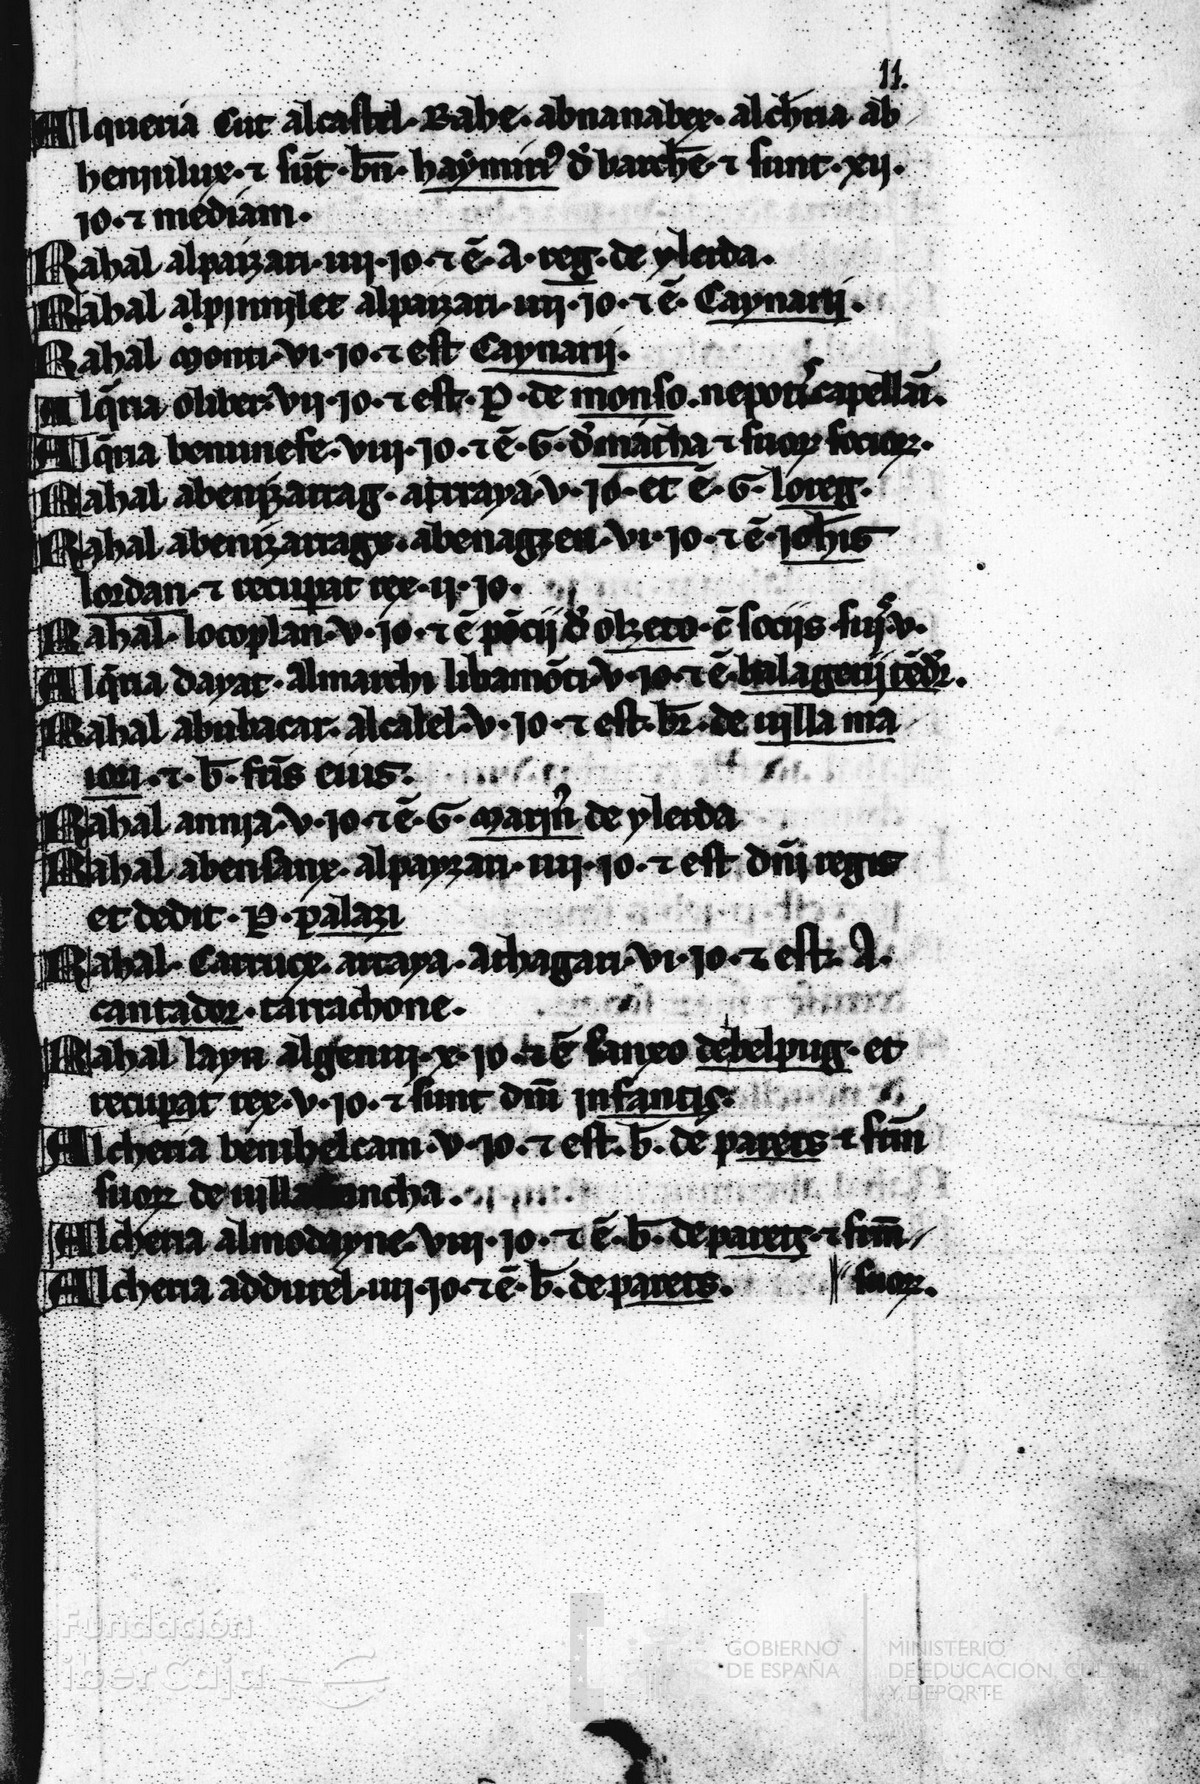 11.
Alqueria Cut alcastel. Rahe. abnanaber. alch̄ria ab
henjulux. ⁊ sūt. bn̄. haymirici d̄ barch̄e. ⁊ sunt. xij.
jo. ⁊ mediam.
Rahal alpaizari. iiij. jo. ⁊ ē. A. reg. de ylerda.
Rahal alpinnilet alpaizari. iiij. jo. ⁊ ē. Caynarij.
Rahal monti. vi. jo. ⁊ est Caynarij.
Alq̄ria oliber. vij. jo. ⁊ est. P. de monso. nepotis capellāi.
Alq̄ria beninefe. viij. jo. ⁊ ē. G. d̄ matha ⁊ suoꝝ socioꝝ.
Rahal abenizarrag. atraya. v. jo. et ē. G. loreg.
Rahal abenizarragx. abenagzen. vi. jo. ⁊ ē. joh̄is
lordan. ⁊ recuꝑat rex. ij. jo.
Rahal. locoplan. v. jo. ⁊ ē pōcij d̄ olzeto. c̄ socijs suis. v.
Alq̄ria dayat. almarchi libamōti. v. jo. ⁊ ē. balagerij
Rahal abubacar. alcalel. v. jo. ⁊ est. br̄. de uilla ma
iori. ⁊. b̄. fr̄is eius.
Rahal annja. v. jo. ⁊ ē. G. marjn̄ de ylerda
Rahal abensanx. alpayzari. iiij. jo. ⁊ est dn̄i regis
et dedit. P. palazi
Rahal. Carruçe. artaya. athagari. vi. jo. ⁊ est. A.
cantador. tarrachone.
Rahal layn algeniz. x. jo. ⁊ ē debelpug. et
recuꝑat rex. v. jo. ⁊ sunt dn̄i infantis.
Alcheria benihelcam. v. jo. ⁊ est. b̄. de parets ⁊ frm̄
suoꝝ de uillafrancha.
Alcheria almodayne. viij. jo. ⁊ ē. b̄. de parets. ⁊ frm̄
Alcheria addurel. iiij. jo. ⁊ ē. b̄. de parets. suoꝝ.
Fundación
iberCaja
GOBIERNO
DE ESPAÑA
MINISTERIO
DE EDUCACIÓN, CULTURA
Y DEPORTE